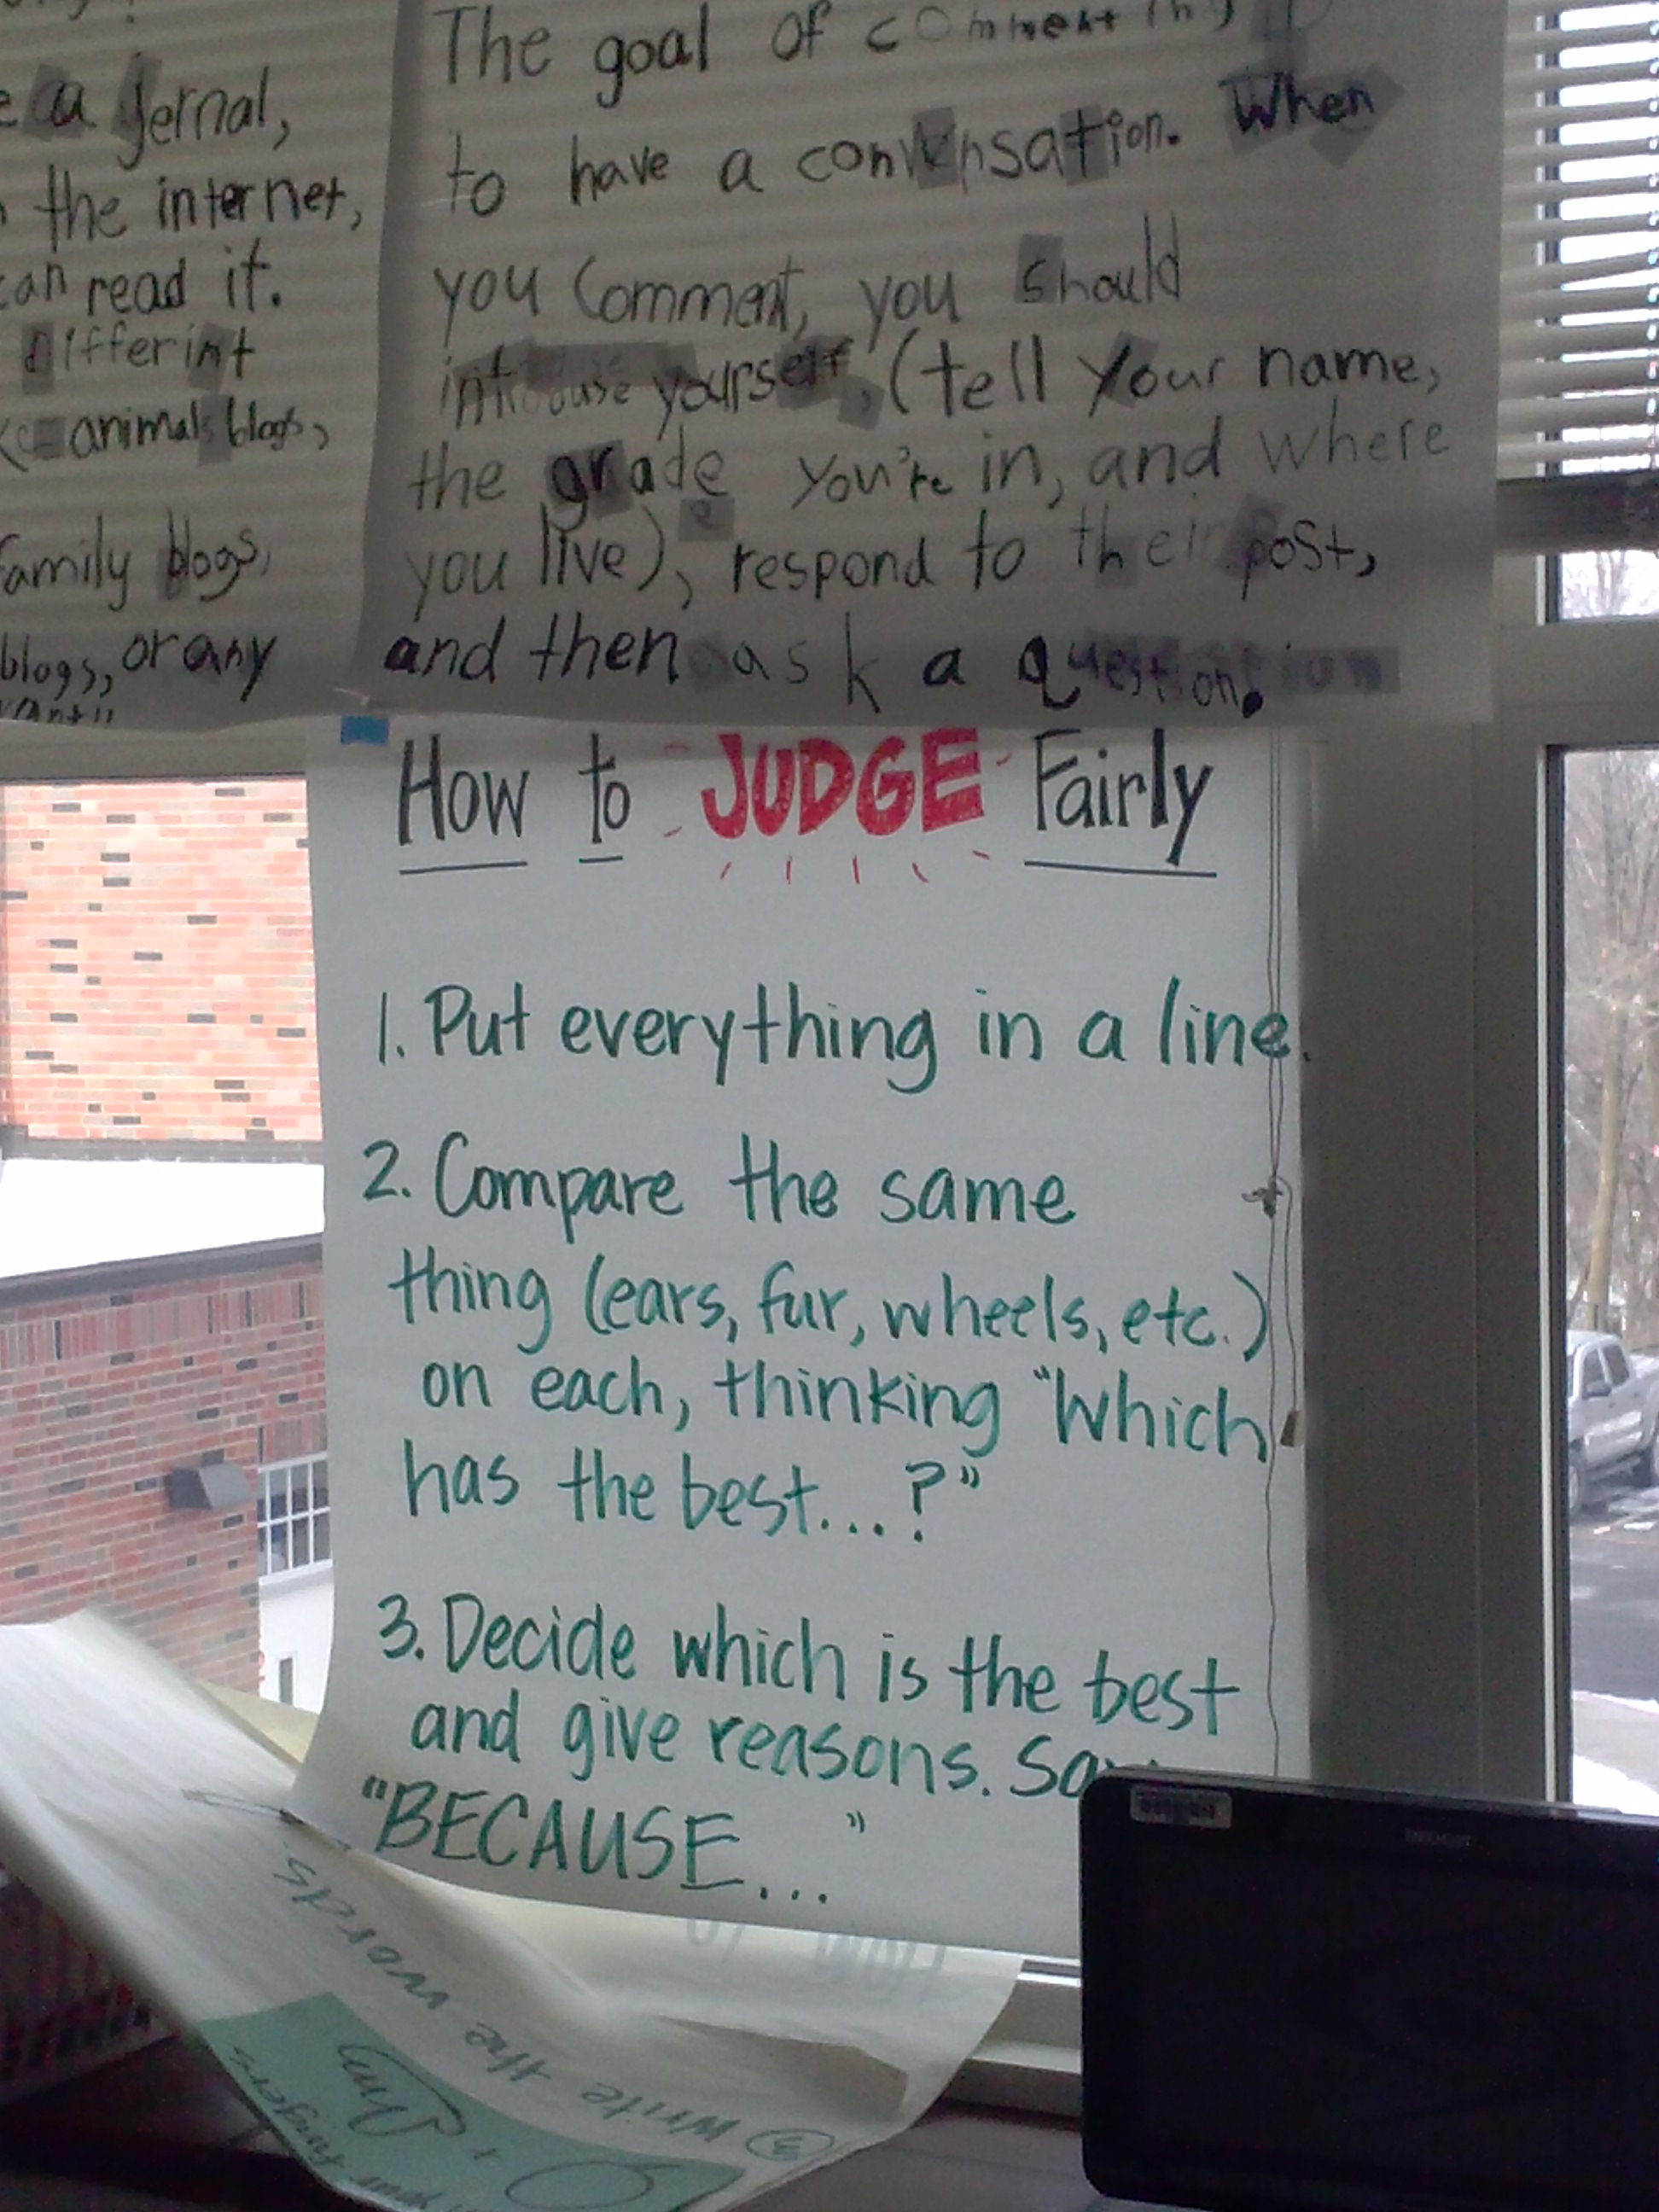 a jernal,
the internet,
can read it.
differint
animals blogs,
family blogs,
blogs, or any
The goal of commenting
to have a conversation. When
you comment, you should
introduse yourself, (tell your name,
the grade you're in, and where
you live), respond to their post,
and then ask a question.
How to JUDGE Fairly
1. Put everything in a line.
2. Compare the same
thing (ears, fur, wheels, etc.)
on each, thinking "Which
has the best...?"
3. Decide which is the best
and give reasons. Say
"BECAUSE..."
How to
3 Write the words
your fingers